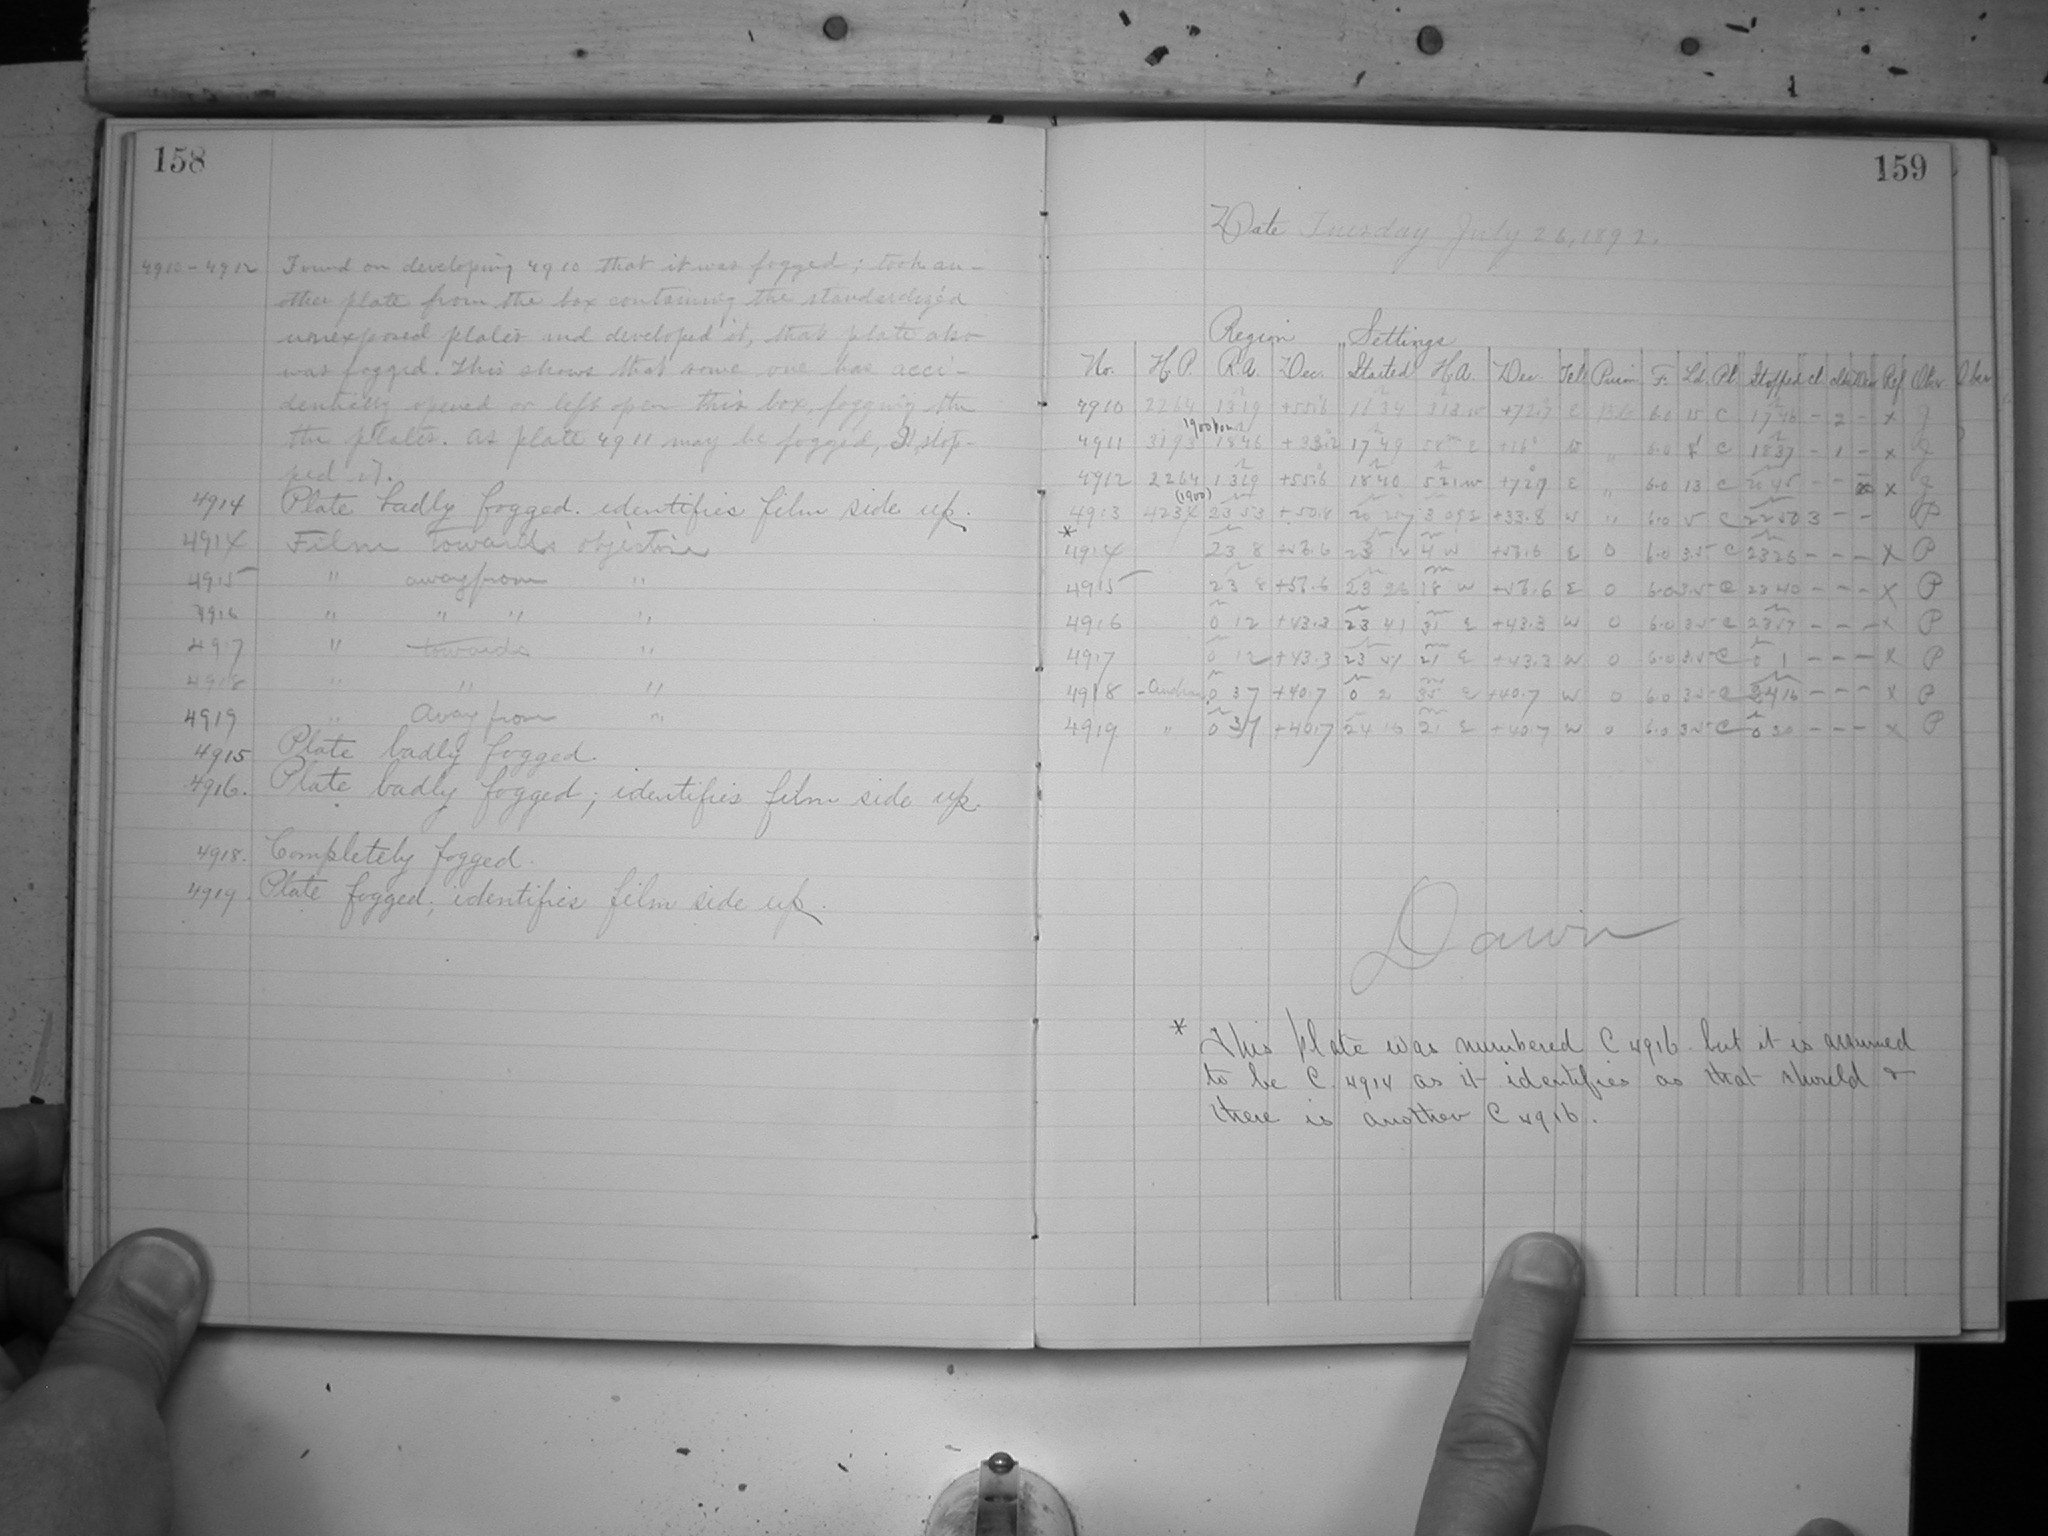 158
4910-4912 Found on developing 4910 that it was fogged; took an-
other plate from the box containing the standardized
unexposed plates and developed it, that plate also
was fogged. This shows that some one has acci-
dentally opened or left open this box, fogging the
the plates. As plate 4911 may be fogged, I stop-
ped it.
4914 Plate badly fogged. identifies film side up.
4914 Film towards objective
4915 " away from "
4916 " " " "
4917 " towards "
4918 " " "
4919 " Away from "
4915 Plate badly fogged.
4916. Plate badly fogged; identifies film side up.
4918. Completely fogged.
4919. Plate fogged; identifies film side up.
159
Date Tuesday July 26, 1892.
Region Settings
No. H.P. R.A. Dec. Started H.A. Dec. Tel. F. Ld. Pl. Stopped Cl. Ref Obs.
4910 2264 1319 +55.6 W E 6.0 15 C 1746 - 2 - x J
4911 3193 1846 1749 E W " 6.0 8 C 1837 - 1 - x J
4912 2264 1319 +55.6 1840 521 W E " 6.0 13 C - - x J
(1900)
4913 4234 23 53 +33.8 W " 6.0 5 C - - P
*
4914 23 8 +56.6 4 W +56.6 E 0 6.0 3.5 C 2326 - - - x P
4915 23 8 +56.6 23 26 18 W +56.6 E 0 6.0 3.5 C 2340 - - - x P
4916 0 12 +43.3 23 41 31 E +43.3 W 0 6.0 3.5 C - - - x P
4917 0 12 +43.3 21 E +43.3 W 0 6.0 3.5 C 0 1 - - - x P
4918 0 37 +40.7 0 2 35 E +40.7 W 0 6.0 3.5 C 2416 - - - x P
4919 " 0 37 +40.7 21 E +40.7 W 0 6.0 3.5 C 0 30 - - - x P
Dawn
* This plate was numbered C 4916 but it is assumed
to be C 4914 as it identifies as that should &
there is another C 4916.